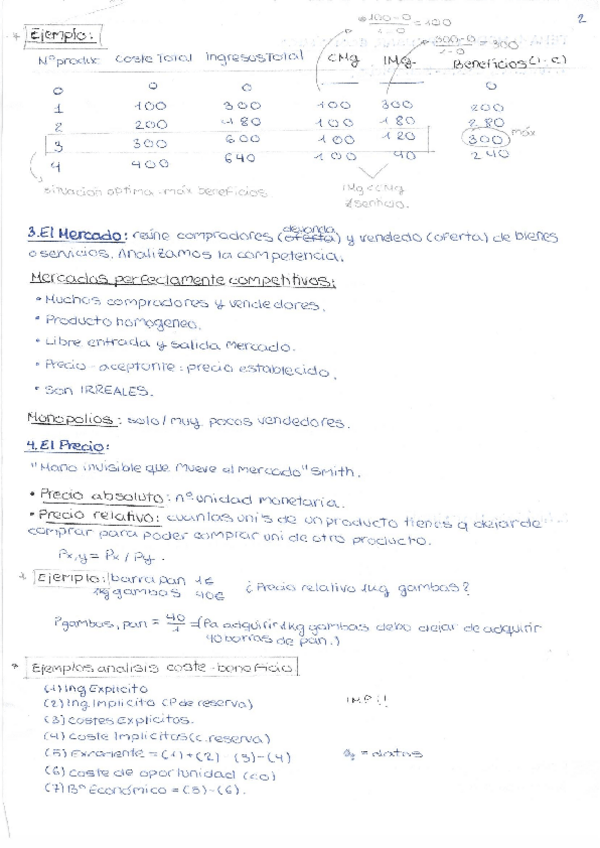 2
* Ejemplo:
100-0 / 1-0 = 100
300-0 / 1-0 = 300
Nº produx. Coste Total Ingresos Total CMg IMg. Beneficios (I-C)
0 0 0 0
1 100 300 100 300 200
2 200 480 100 180 280
3 300 600 100 120 300 máx
4 400 640 100 40 240
situación optima - máx beneficios
IMg < CMg
sentido.
3. El Mercado: reúne compradores (oferta) demanda y vendedo (oferta) de bienes
o servicios. Analizamos la competencia.
Mercados perfectamente competitivos:
• Muchos compradores y vendedores.
• Producto homogeneo.
• Libre entrada y salida mercado.
• Precio-aceptante: precio establecido.
• Son IRREALES.
Monopolios: solo/muy pocos vendedores.
4. El Precio:
"Mano invisible que mueve al mercado" Smith.
• Precio absoluto: nº unidad monetaria.
• Precio relativo: cuantas unis de un producto tienes q dejar de
comprar para poder comprar uni de otro producto.
Px,y = Px / Py.
Ejemplo: barra pan 1€
1kg gambas 40€ ¿Precio relativo 1kg gambas?
Pgambas, pan = 40/1 = (Pa adquirir 1kg gambas debo dejar de adquirir
40 barras de pan.)
* Ejemplos analisis coste-beneficio
(1) Ing Explicito
(2) Ing. Implicito (P de reserva) IMP!!
(3) Costes Explicitos.
(4) Coste Implicitos (c. reserva)
(5) Excedente = (1) + (2) - (3) - (4)
(6) Coste de oportunidad (CO)
(7) Bº Económico = (5) - (6).